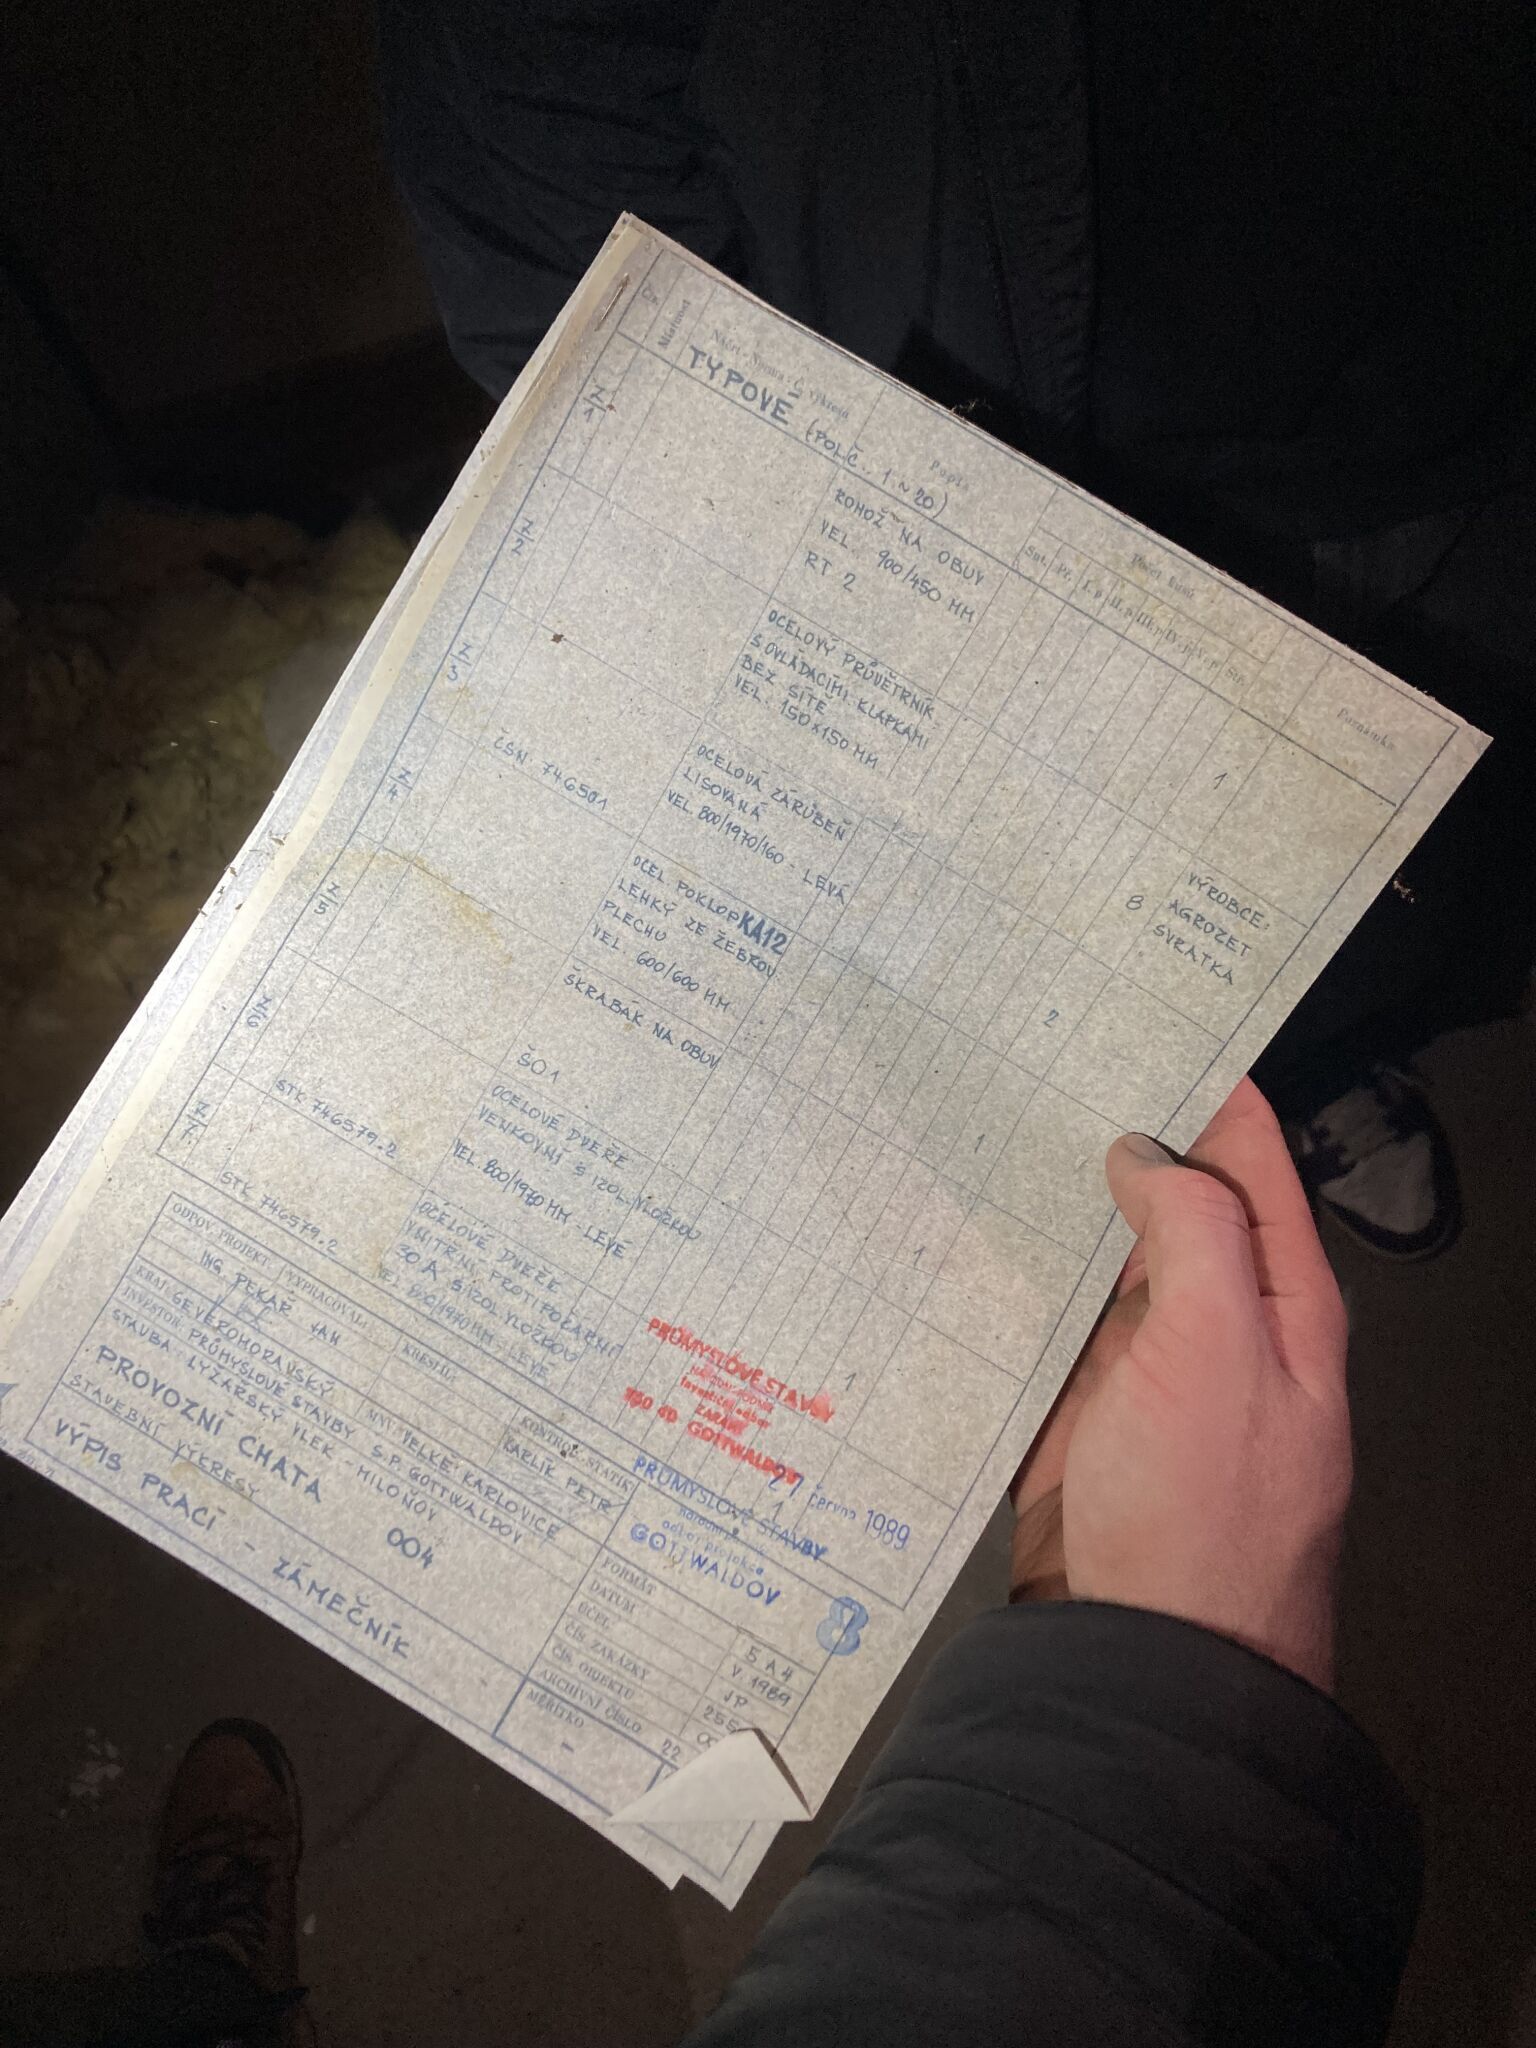 Čís.
Místnost
Náčrt - Norma - Č. výkresu
Popis
Počet kusů
Sut. Př. I. p. II. p. III. p. IV. p. V. p. Stř.
Poznámka
TYPOVÉ (POL.Č. 1 ~ 20)
Z/1
ROHOŽ NA OBUV
VEL. 900/450 MM
RT 2
1
VÝROBCE:
AGROZET
SVRATKA
Z/2
OCELOVÝ PRŮVĚTRNÍK
S OVLÁDACÍMI KLAPKAMI
BEZ SÍTĚ
VEL. 150x150 MM
8
Z/3
ČSN 746501
OCELOVÁ ZÁRUBEŇ
LISOVANÁ
VEL. 800/1970/160 - LEVÁ
2
Z/4
OCEL POKLOP KA12
LEHKÝ ZE ŽEBROV.
PLECHU
VEL. 600/600 MM
1
Z/5
ŠKRABÁK NA OBUV
ŠO1
1
Z/6
STK 746579.2
OCELOVÉ DVEŘE
VENKOVNÍ S IZOL. VLOŽKOU
VEL. 800/1970 MM - LEVÉ
1
Z/7
STK 746579.2
OCELOVÉ DVEŘE
VNITŘNÍ PROTIPOŽÁRNÍ
30 A S IZOL VLOŽKOU
VEL. 800/1970 MM - LEVÉ
1
PRŮMYSLOVÉ STAVBY
Investiční odbor
GOTTWALDOV
27. června 1989
PRŮMYSLOVÉ STAVBY
národní podnik
odbor projekce
GOTTWALDOV
8
ODPOV. PROJEKT. VYPRACOVAL KRESLIL KONTROL. STATIK
ING. PEKAŘ JAN KARLÍK PETR
KRAJ: SEVEROMORAVSKÝ MNV: VELKÉ KARLOVICE
INVESTOR: PRŮMYSLOVÉ STAVBY S.P. GOTTWALDOV
STAVBA: LYŽAŘSKÝ VLEK - MILOŇOV
PROVOZNÍ CHATA 004
STAVEBNÍ VÝKRESY
VÝPIS PRACÍ - ZÁMEČNÍK
FORMÁT 5 A4
DATUM V. 1989
ÚČEL JP
ČÍS. ZAKÁZKY 255
ČÍS. OBJEKTU
ARCHIVNÍ ČÍSLO 22
MĚŘÍTKO
-